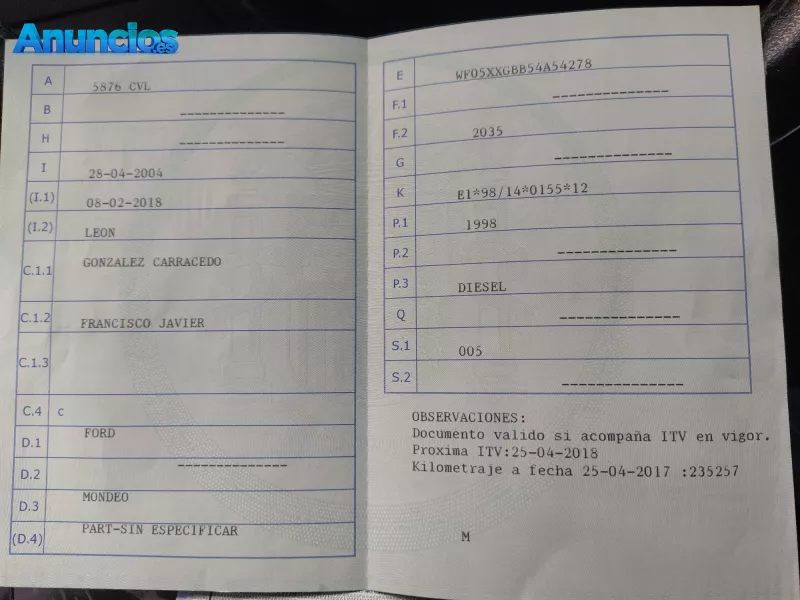 Anuncios.es
A 5876 CVL
B --------------
H --------------
I 28-04-2004
(I.1) 08-02-2018
(I.2) LEON
C.1.1 GONZALEZ CARRACEDO
C.1.2 FRANCISCO JAVIER
C.1.3
C.4 c
D.1 FORD
D.2 --------------
D.3 MONDEO
(D.4) PART-SIN ESPECIFICAR
E WF05XXGBB54A54278
F.1 --------------
F.2 2035
G --------------
K E1*98/14*0155*12
P.1 1998
P.2 --------------
P.3 DIESEL
Q --------------
S.1 005
S.2 --------------
OBSERVACIONES:
Documento valido si acompaña ITV en vigor.
Proxima ITV:25-04-2018
Kilometraje a fecha 25-04-2017 :235257
M